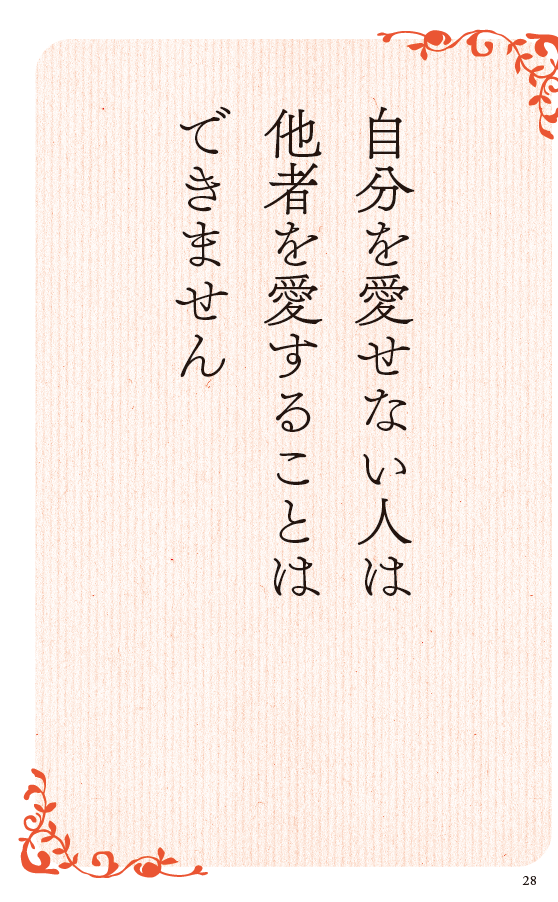 自分を愛せない人は
他者を愛することは
できません
28